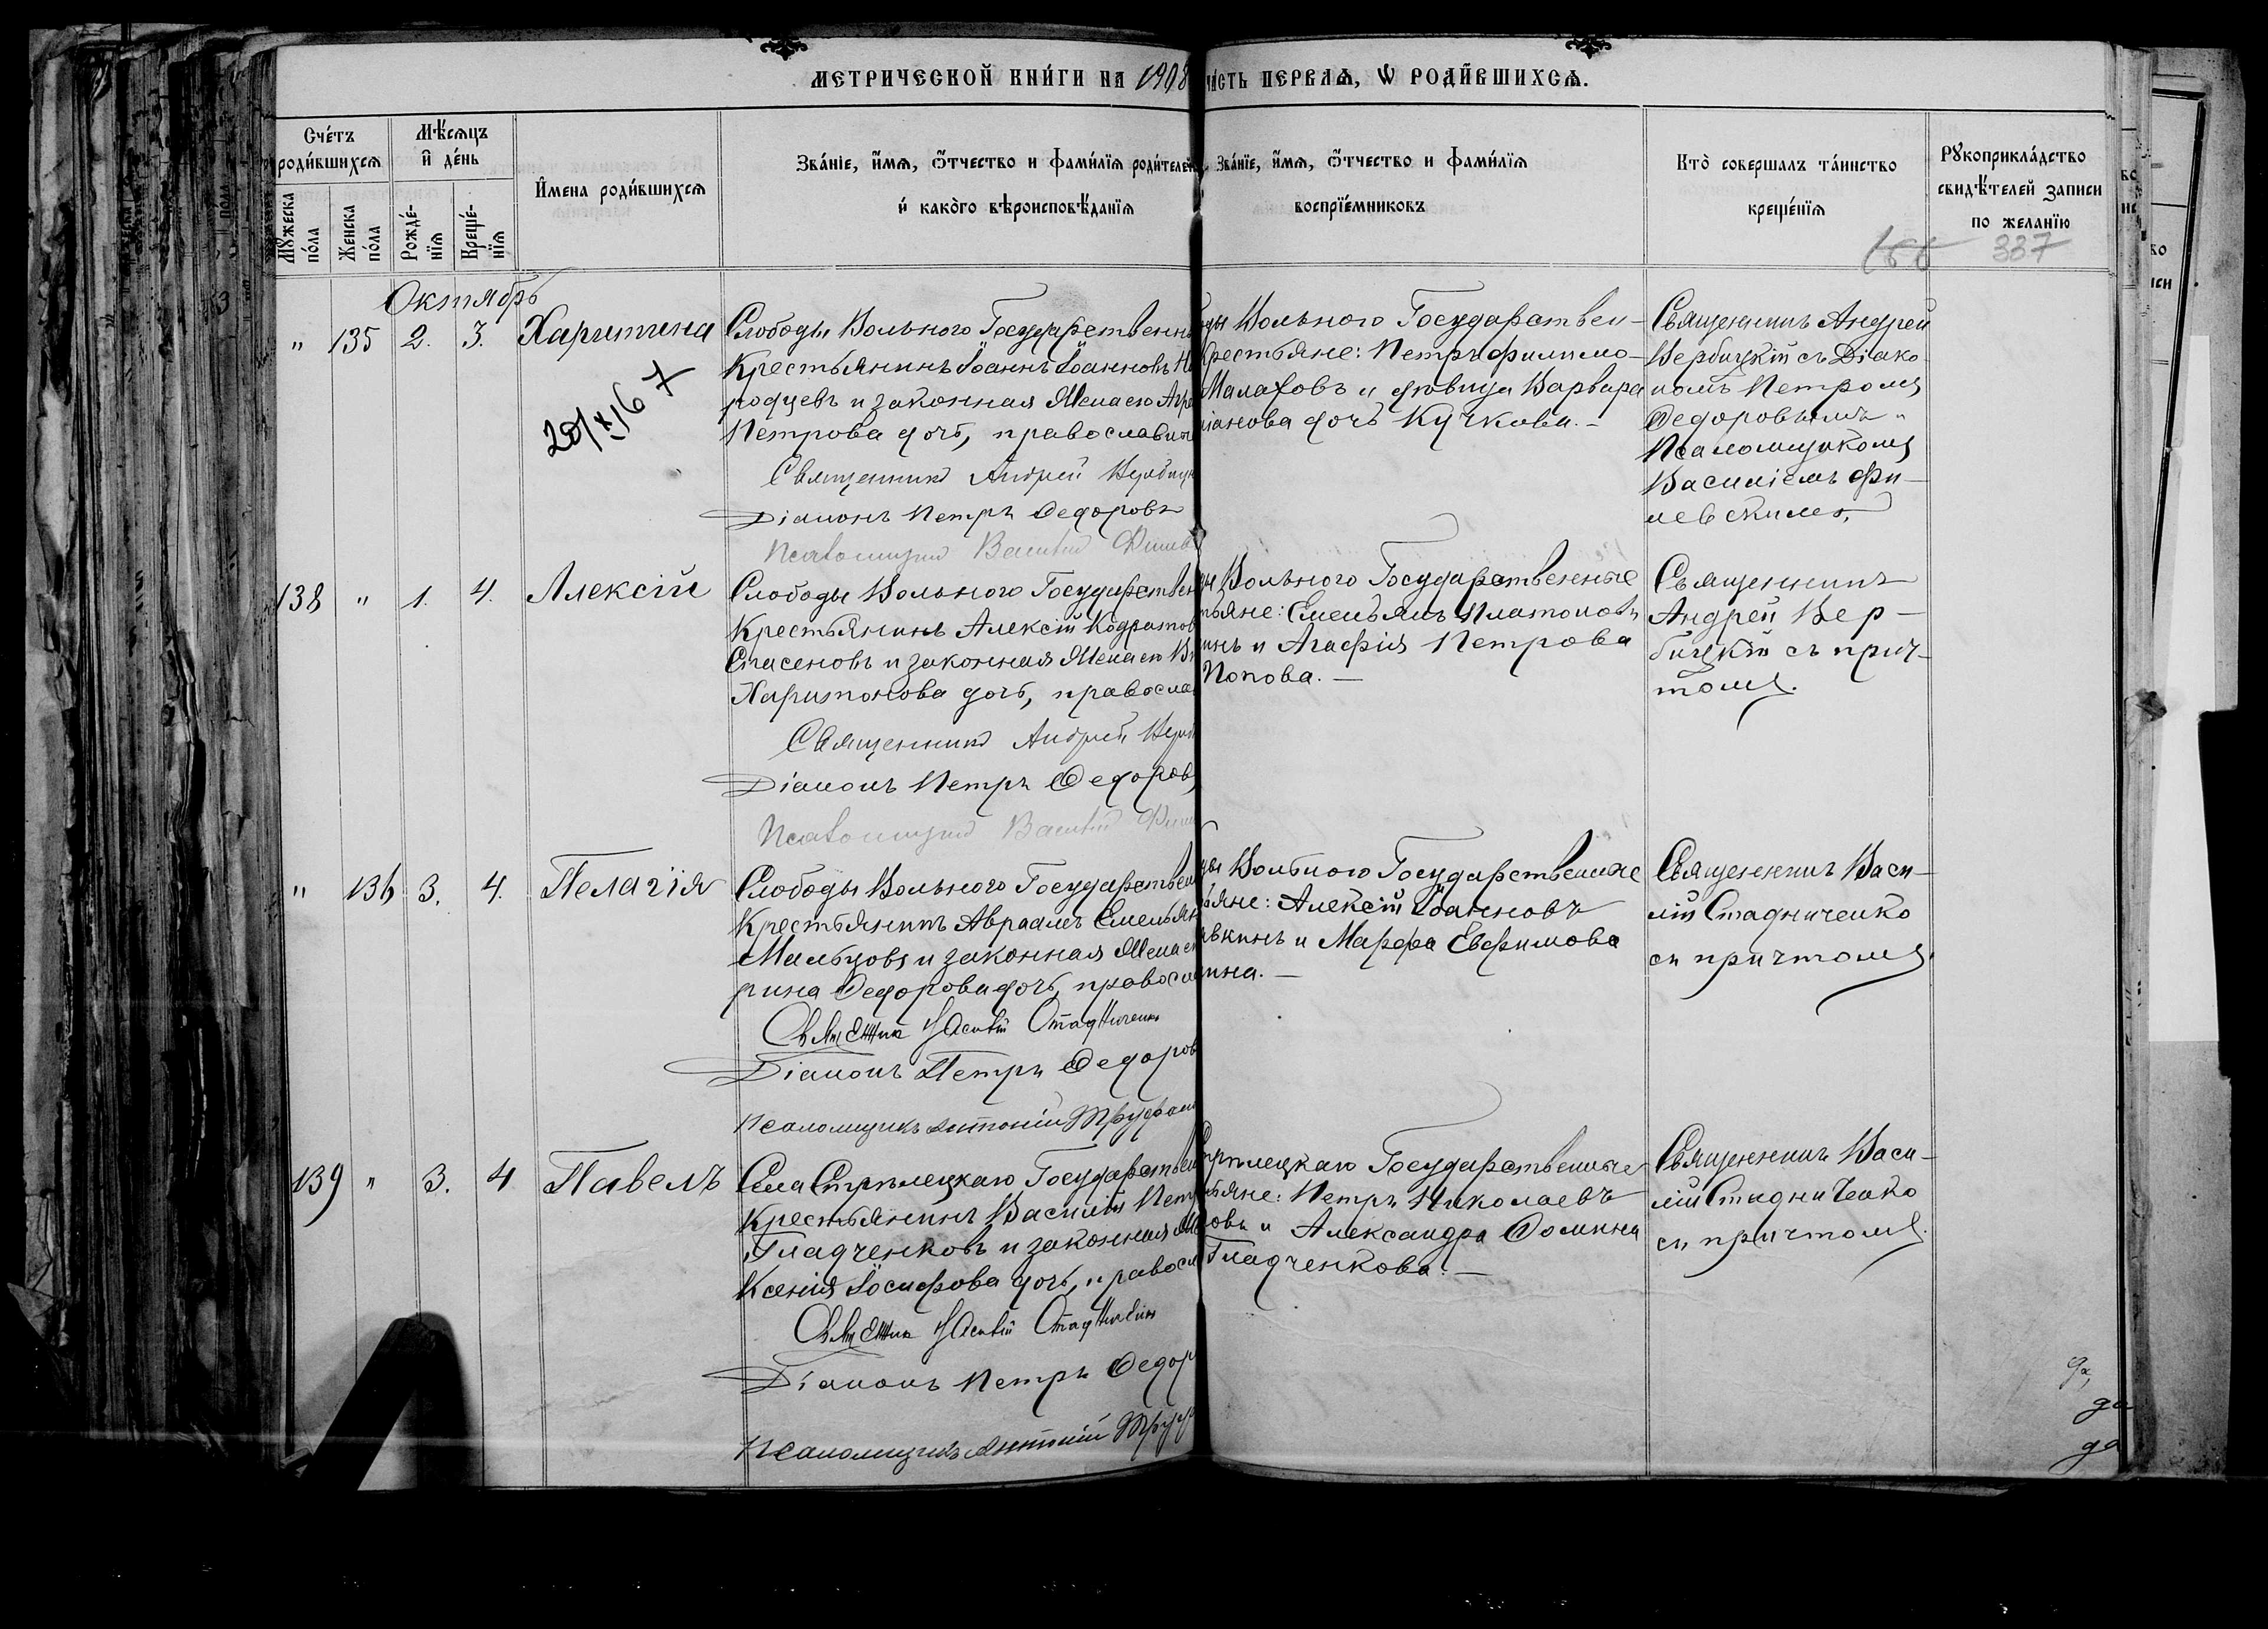 МЕТРИЧЕСКОЙ КНИ́ГИ НА 1908 ЧА́СТЬ ПЕРВАѦ, Ѡ҆ РОДИ́ВШИХСѦ.
Сче́тъ роди́вшихсѧ
Мꙋжеска по́ла
Женска по́ла
Мѣ́сѧцъ и҆ де́нь
Рожде́-нїѧ
Креще́-нїѧ
И҆мена роди́вшихсѧ
Зва́нїе, и҆́мѧ, ѻ҆́тчество и фами́лїѧ роди́телей
и҆ како́гѡ вѣроисповѣ́данїѧ
Зва́нїе, и҆́мѧ, ѻ҆́тчество и фами́лїѧ
воспрїе́мниковъ
Кто̀ совершалъ та́инство
креще́нїѧ
Рꙋкоприкла́дство
свидѣ́телей записи
по желанїю
337
Октябрь
" 135 2. 3. Харитина
Слободы Вольнаго Государственн
Крестьянинъ Іоаннъ Іоанновъ
родцевъ и законная жена его Агр
Петрова дочь, православн
Священникъ Андрей Вербиц
Діаконъ Петръ Федоровъ
Псаломщикъ Василій Филев
ды Вольнаго Государствен-
крестьяне: Петръ Филимо-
Малаховъ и девица Варвара
іанова дочь Кучкова.-
Священникъ Андрей
Вербицкій съ Діако
номъ Петромъ
Федоровымъ
Псаломщикомъ
Василіемъ Фи-
левскимъ.
138 " 1. 4. Алексій
Слободы Вольнаго Государствен
Крестьянинъ Алексій Кодратов
Стасеновъ и законная жена его
Харитонова дочь, правосла
Священникъ Андрей Верб
Діаконъ Петръ Федоровъ
Псаломщикъ Василій Фил
ды Вольнаго Государственные
тьяне: Емельянъ Платоновъ
инъ и Агафія Петрова
Попова.-
Священникъ
Андрей Вер-
бицкій съ прич-
томъ.
" 136 3. 4. Пелагія
Слободы Вольнаго Государствен
Крестьянинъ Авраамъ Емельян
Мальцовъ и законная жена ег
рина Федорова дочь, правосл
Священникъ Василій Стадниченко
Діаконъ Петръ Федоров
Псаломщикъ Антоній Труфан
ды Вольнаго Государственные
ьяне: Алексій Іоанновъ
вкинъ и Марфа Евфимова
ина.-
Священникъ Васи-
лій Стадниченко
съ причтомъ.
139 " 3. 4 Павелъ
Села Стрѣлецкаго Государствен
Крестьянинъ Василій Петр
Гладченковъ и законная же
Ксенія Іосифова дочь, правосл
Священникъ Василій Стадниченко
Діаконъ Петръ Федор
Псаломщикъ Антоній Труф
трѣлецкаго Государственные
ьяне: Петръ Николаевъ
овъ и Александра Фомина
Гладченкова.-
Священникъ Васи-
лій Стадниченко
съ причтомъ.